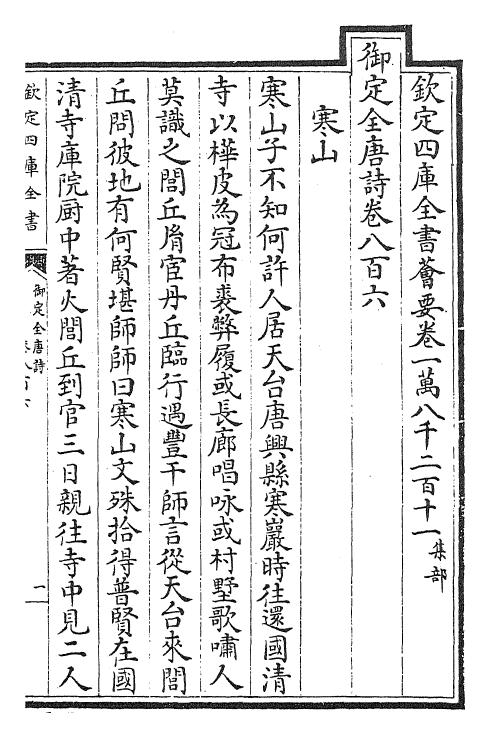 欽定四庫全書薈要卷一萬八千二百十一集部
御定全唐詩卷八百六
寒山
寒山子不知何許人居天台唐興縣寒巖時往還國清
寺以樺皮為冠布裘弊履或長廊唱咏或村墅歌嘯人
莫識之閭丘胤宦丹丘臨行遇豐干師言從天台來閭
丘問彼地有何賢堪師師曰寒山文殊拾得普賢在國
清寺庫院厨中著火閭丘到官三日親往寺中見二人
欽定四庫全書
御定全唐詩
卷八百六
一